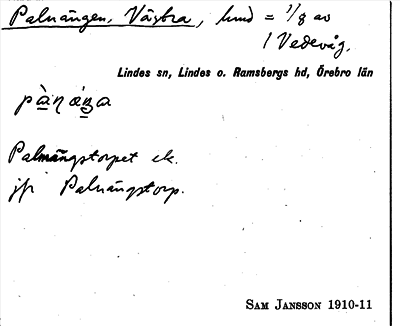 Palnängen, Västra, hmd = 1/8 av
1 Vedevåg.
Lindes sn, Lindes o. Ramsbergs hd, Örebro län
Palnängstorpet ek.
jfr Palnängstorp.
SAM JANSSON 1910-11